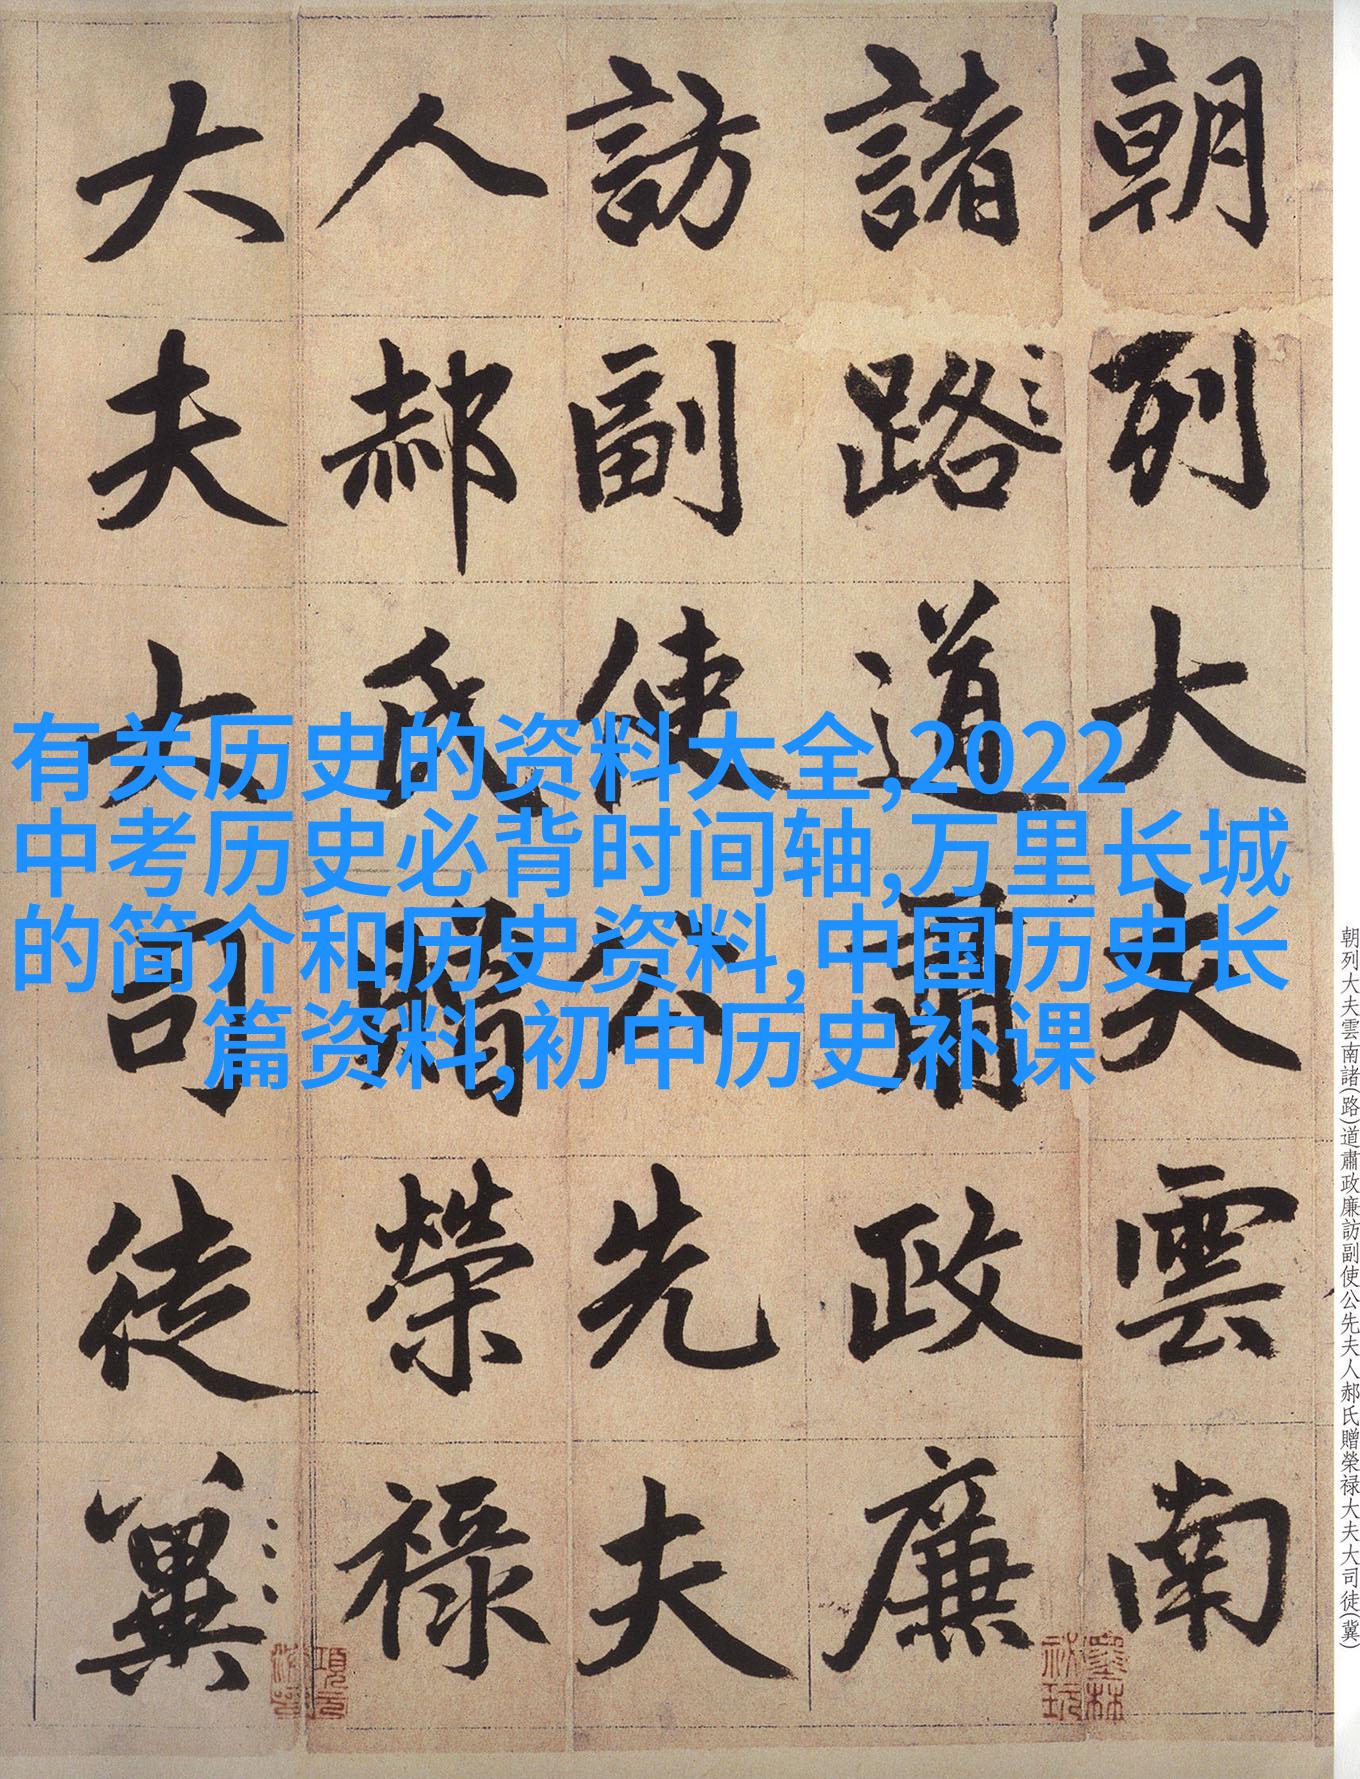 朝列大夫雲南
諸路道肅政廉
訪副使公先夫
人郝氏贈榮禄
大夫大司徒冀
有关历史的资料大全,2022
中考历史必背时间轴,万里长城
的简介和历史资料,中国历史长
篇资料,初中历史补课
朝列大夫雲南諸(路)道肅政廉訪副使公先夫人郝氏贈榮禄大夫大司徒(冀)
墨林
祕玩